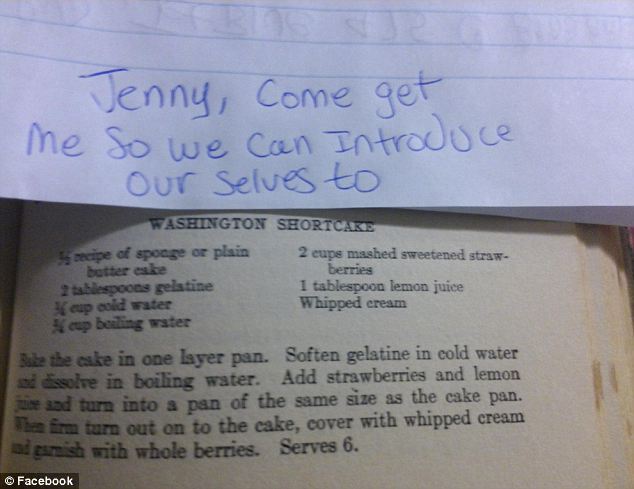 Jenny, Come get
me So we Can Introduce
our selves to
WASHINGTON SHORTCAKE
½ recipe of sponge or plain
butter cake
2 tablespoons gelatine
¼ cup cold water
¾ cup boiling water
2 cups mashed sweetened straw-
berries
1 tablespoon lemon juice
Whipped cream
Bake the cake in one layer pan. Soften gelatine in cold water
and dissolve in boiling water. Add strawberries and lemon
juice and turn into a pan of the same size as the cake pan.
When firm turn out on to the cake, cover with whipped cream
and garnish with whole berries. Serves 6.
© Facebook